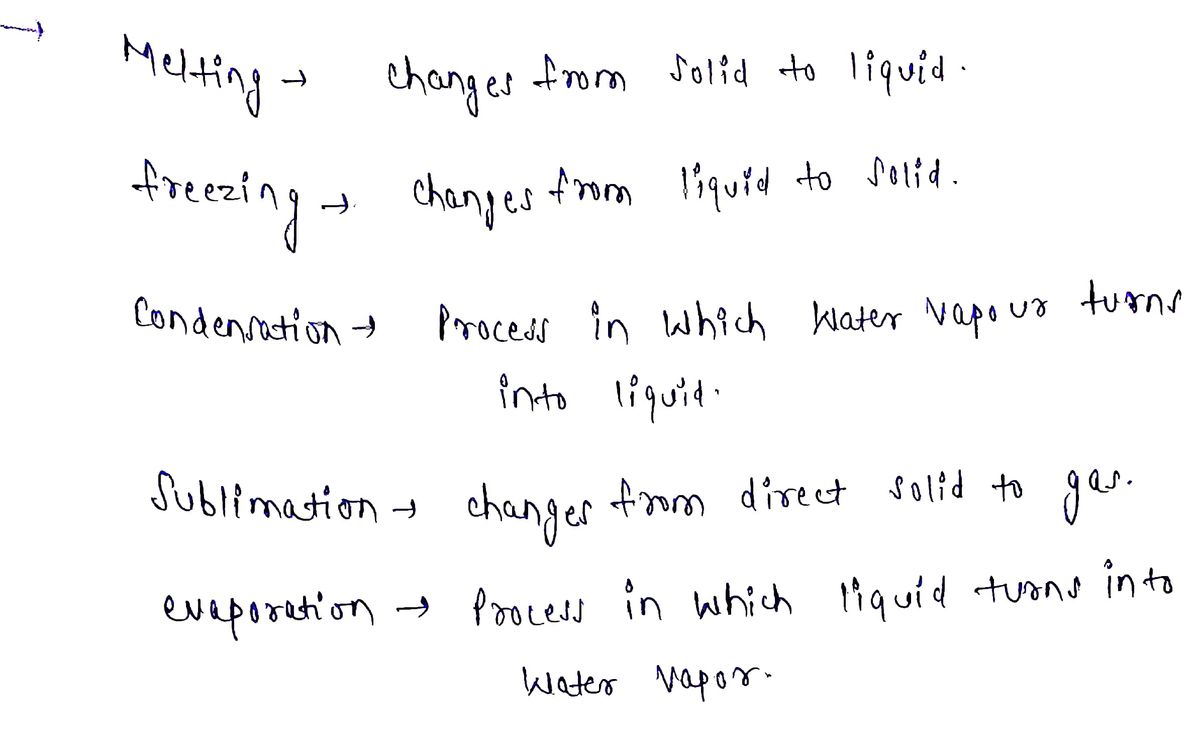 → Melting → changes from solid to liquid.
freezing → changes from liquid to solid.
Condensation → Process in which Water Vapour turns
into liquid.
Sublimation → changes from direct solid to gas.
evaporation → Process in which liquid turns into
Water Vapor.